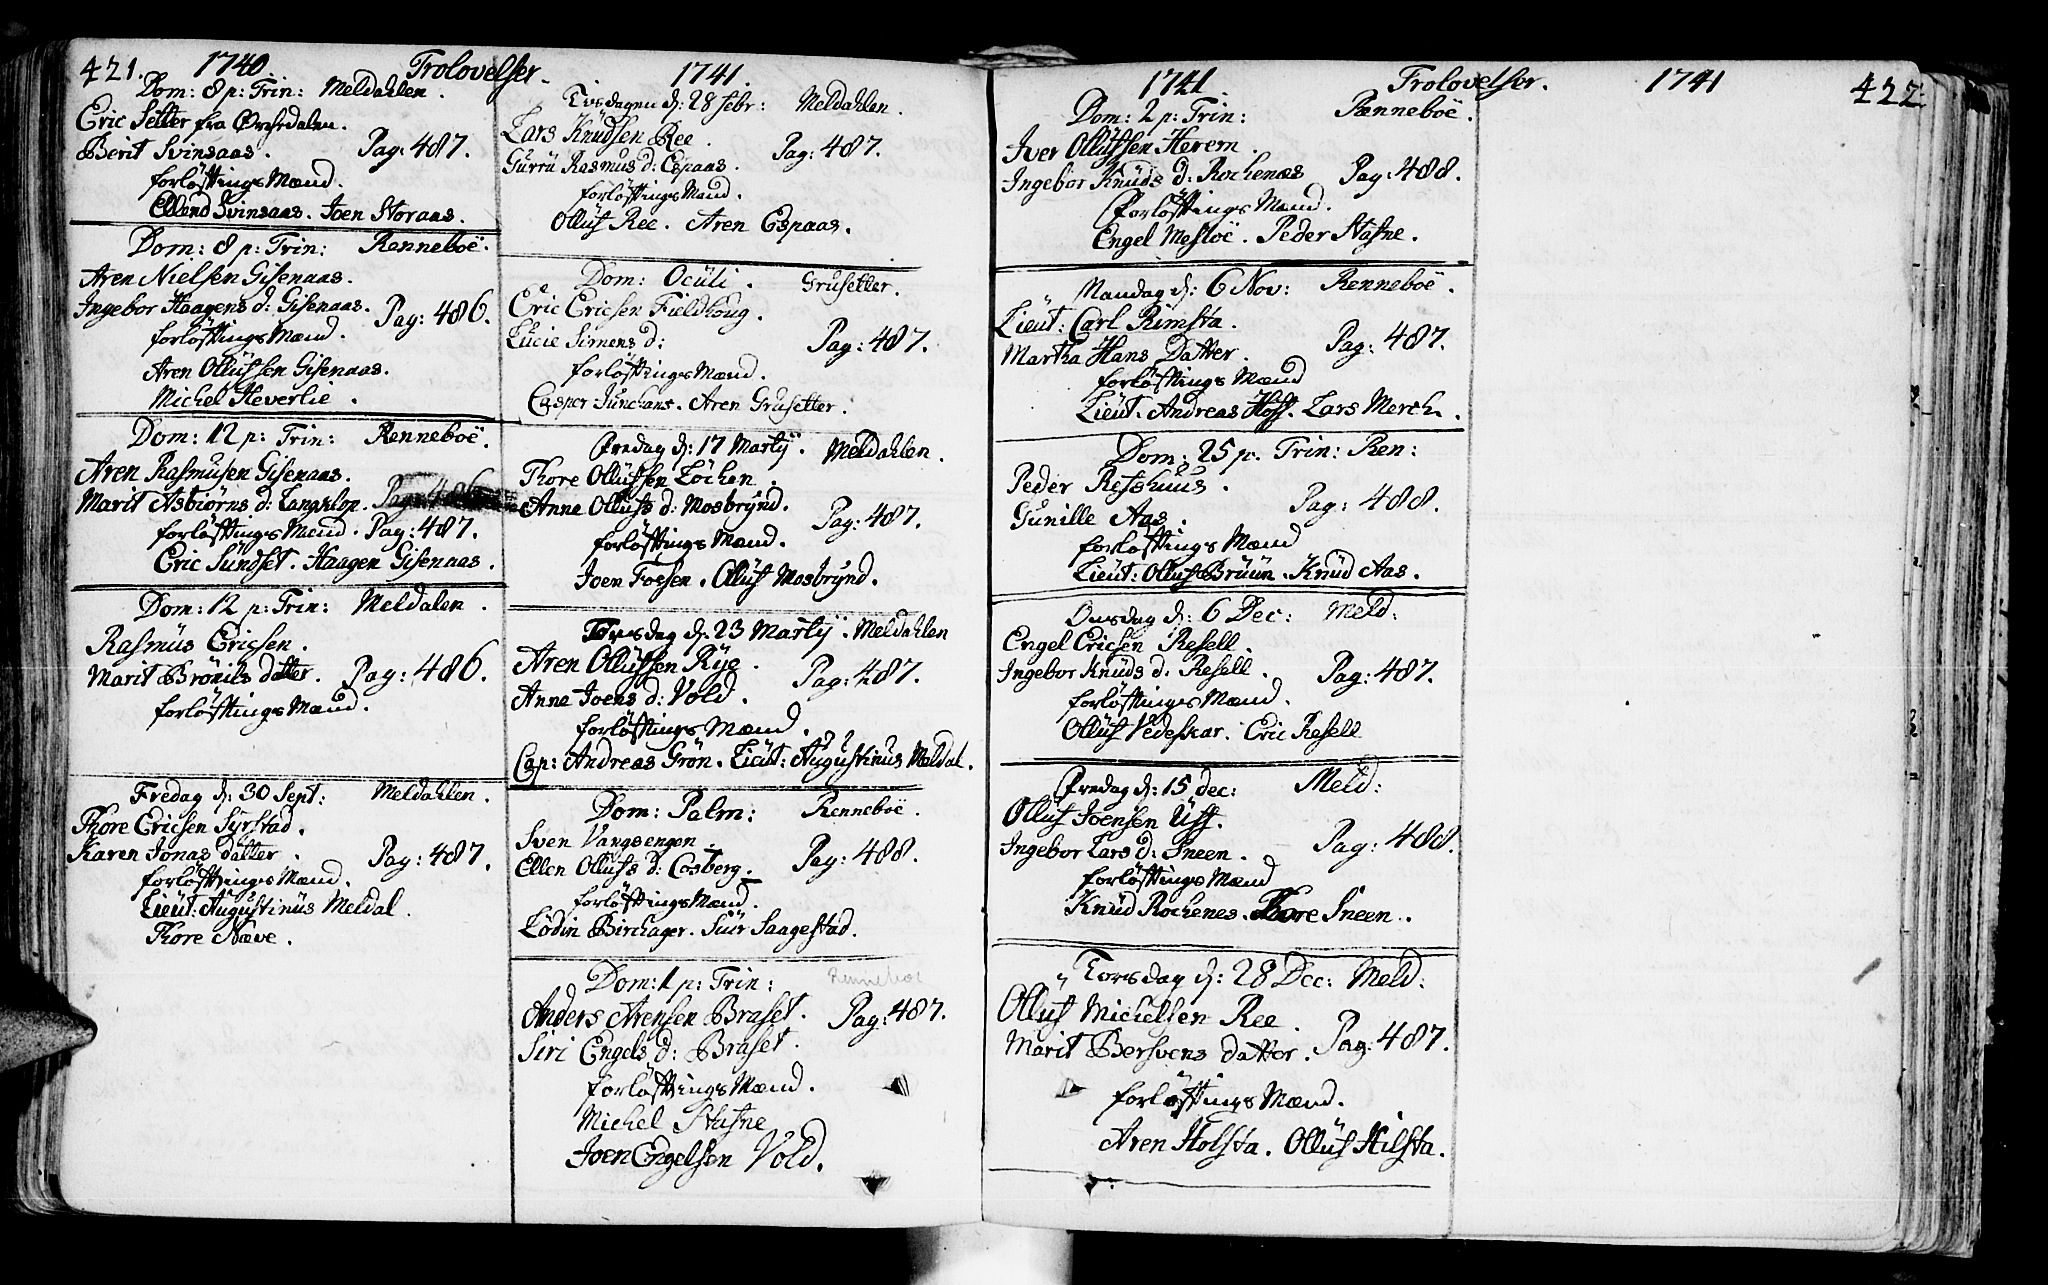 421. 1740 Trolovelser. 1741.
Dom: 8 p: Trin: Meldahlen.
Eric Setter fra Ørchedalen.
Berit Svinsaas. Pag: 487.
forløftings Mænd.
Ellend Svinsaas. Joen Storaas.
Dom: 8 p: Trin: Renneboë.
Aren Nielsen Gisenaas.
Ingebor Haagens d: Gisenaas. Pag: 486.
forløftings Mænd.
Aren Ollufsen Gisenaas.
Michel Heverlie.
Dom: 12 p: Trin: Renneboë.
Aren Rasmusen Gisenaas.
Marit Asbiørns d: Langklop.
forløftings Mænd. Pag: 487.
Eric Sundset. Haagen Gisenaas.
Dom: 12 p: Trin: Meldalen.
Rasmus Ericsen.
Marit Brønils datter. Pag: 486.
forløftings Mænd.
Fredag d: 30 Sept: Meldahlen.
Thore Ericsen Syrstad.
Karen Jonas datter. Pag: 487.
forløftings Mænd.
Lieut: Augustinus Meldal.
Thore Næve.
Tirsdagen d: 28 febr: Meldahlen.
Lars Knudsen Ree.
Gurru Rasmus d: Espaas. Pag: 487.
forløftings Mænd.
Olluf Ree. Aren Espaas.
Dom: Oculi. Grusetter.
Eric Ericsen Fieldhoug.
Lucie Simens d: Pag: 487.
forløftings Mænd.
Casper Junchans. Aren Grusetter.
Fredag d: 17 Martij. Meldahlen.
Thore Ollufsen Løchen.
Anne Ollufs d: Mosbrynd. Pag: 487.
forløftings Mænd.
Joen Foesen. Olluf Mosbrynd.
Torsdag d: 23 Martij. Meldahlen
Aren Ollufsen Rye.
Anne Joens d: Vold. Pag: 487.
forløftings Mænd.
Cap: Andreas Grøn. Lieut: Augustinus Meldal.
Dom: Palm: Renneboë.
Sven Vangsengen
Ellen Ollufs d: Cosberg. Pag: 488.
forløftings Mænd.
Lodin Birchager. Siur Saagestad.
Dom: 1 p: Trin: Renneboe
Anders Arensen Braset. Pag: 487.
Siri Engels d: Braset.
forløftings Mænd.
Michel Stafne
Joen Engelsen Vold.
1741. Trolovelser. 1741 422
Dom: 2 p: Trin: Rænneboë.
Iver Ollufsen Herem.
Ingebor Knuds d: Rochenæs Pag: 488.
forløftings Mænd.
Engel Mesloë. Peder Stafne.
Mandag d: 6 Nov: Renneboë.
Lieut: Carl Rimsta.
Martha Hans Datter. Pag: 487.
forløftings Mænd
Lieut. Andreas Hoff. Lars Merch.
Dom: 25 p. Trin: Ren:
Peder Resshuus.
Gunille Aas. Pag: 488.
forløftings Mænd
Lieut: Olluf Bruun. Knud Aas.
Onsdag d: 6 Dec: Meld:
Engel Ericsen Resell.
Ingebor Knuds d: Resell. Pag: 487.
forløftings Mænd.
Olluf Vedeskar. Eric Resell
Fredag d: 15 dec: Meld:
Olluf Joensen Uff.
Ingebor Lars d: Sneen. Pag: 488.
forløftings Mænd
Knud Rochenes. Thore Sneen.
Torsdag d: 28 Dec: Meld:
Olluf Michelsen Ree.
Marit Bersvens datter. Pag: 487.
forløftings Mænd.
Aren Holsta. Olluf Hilsta.